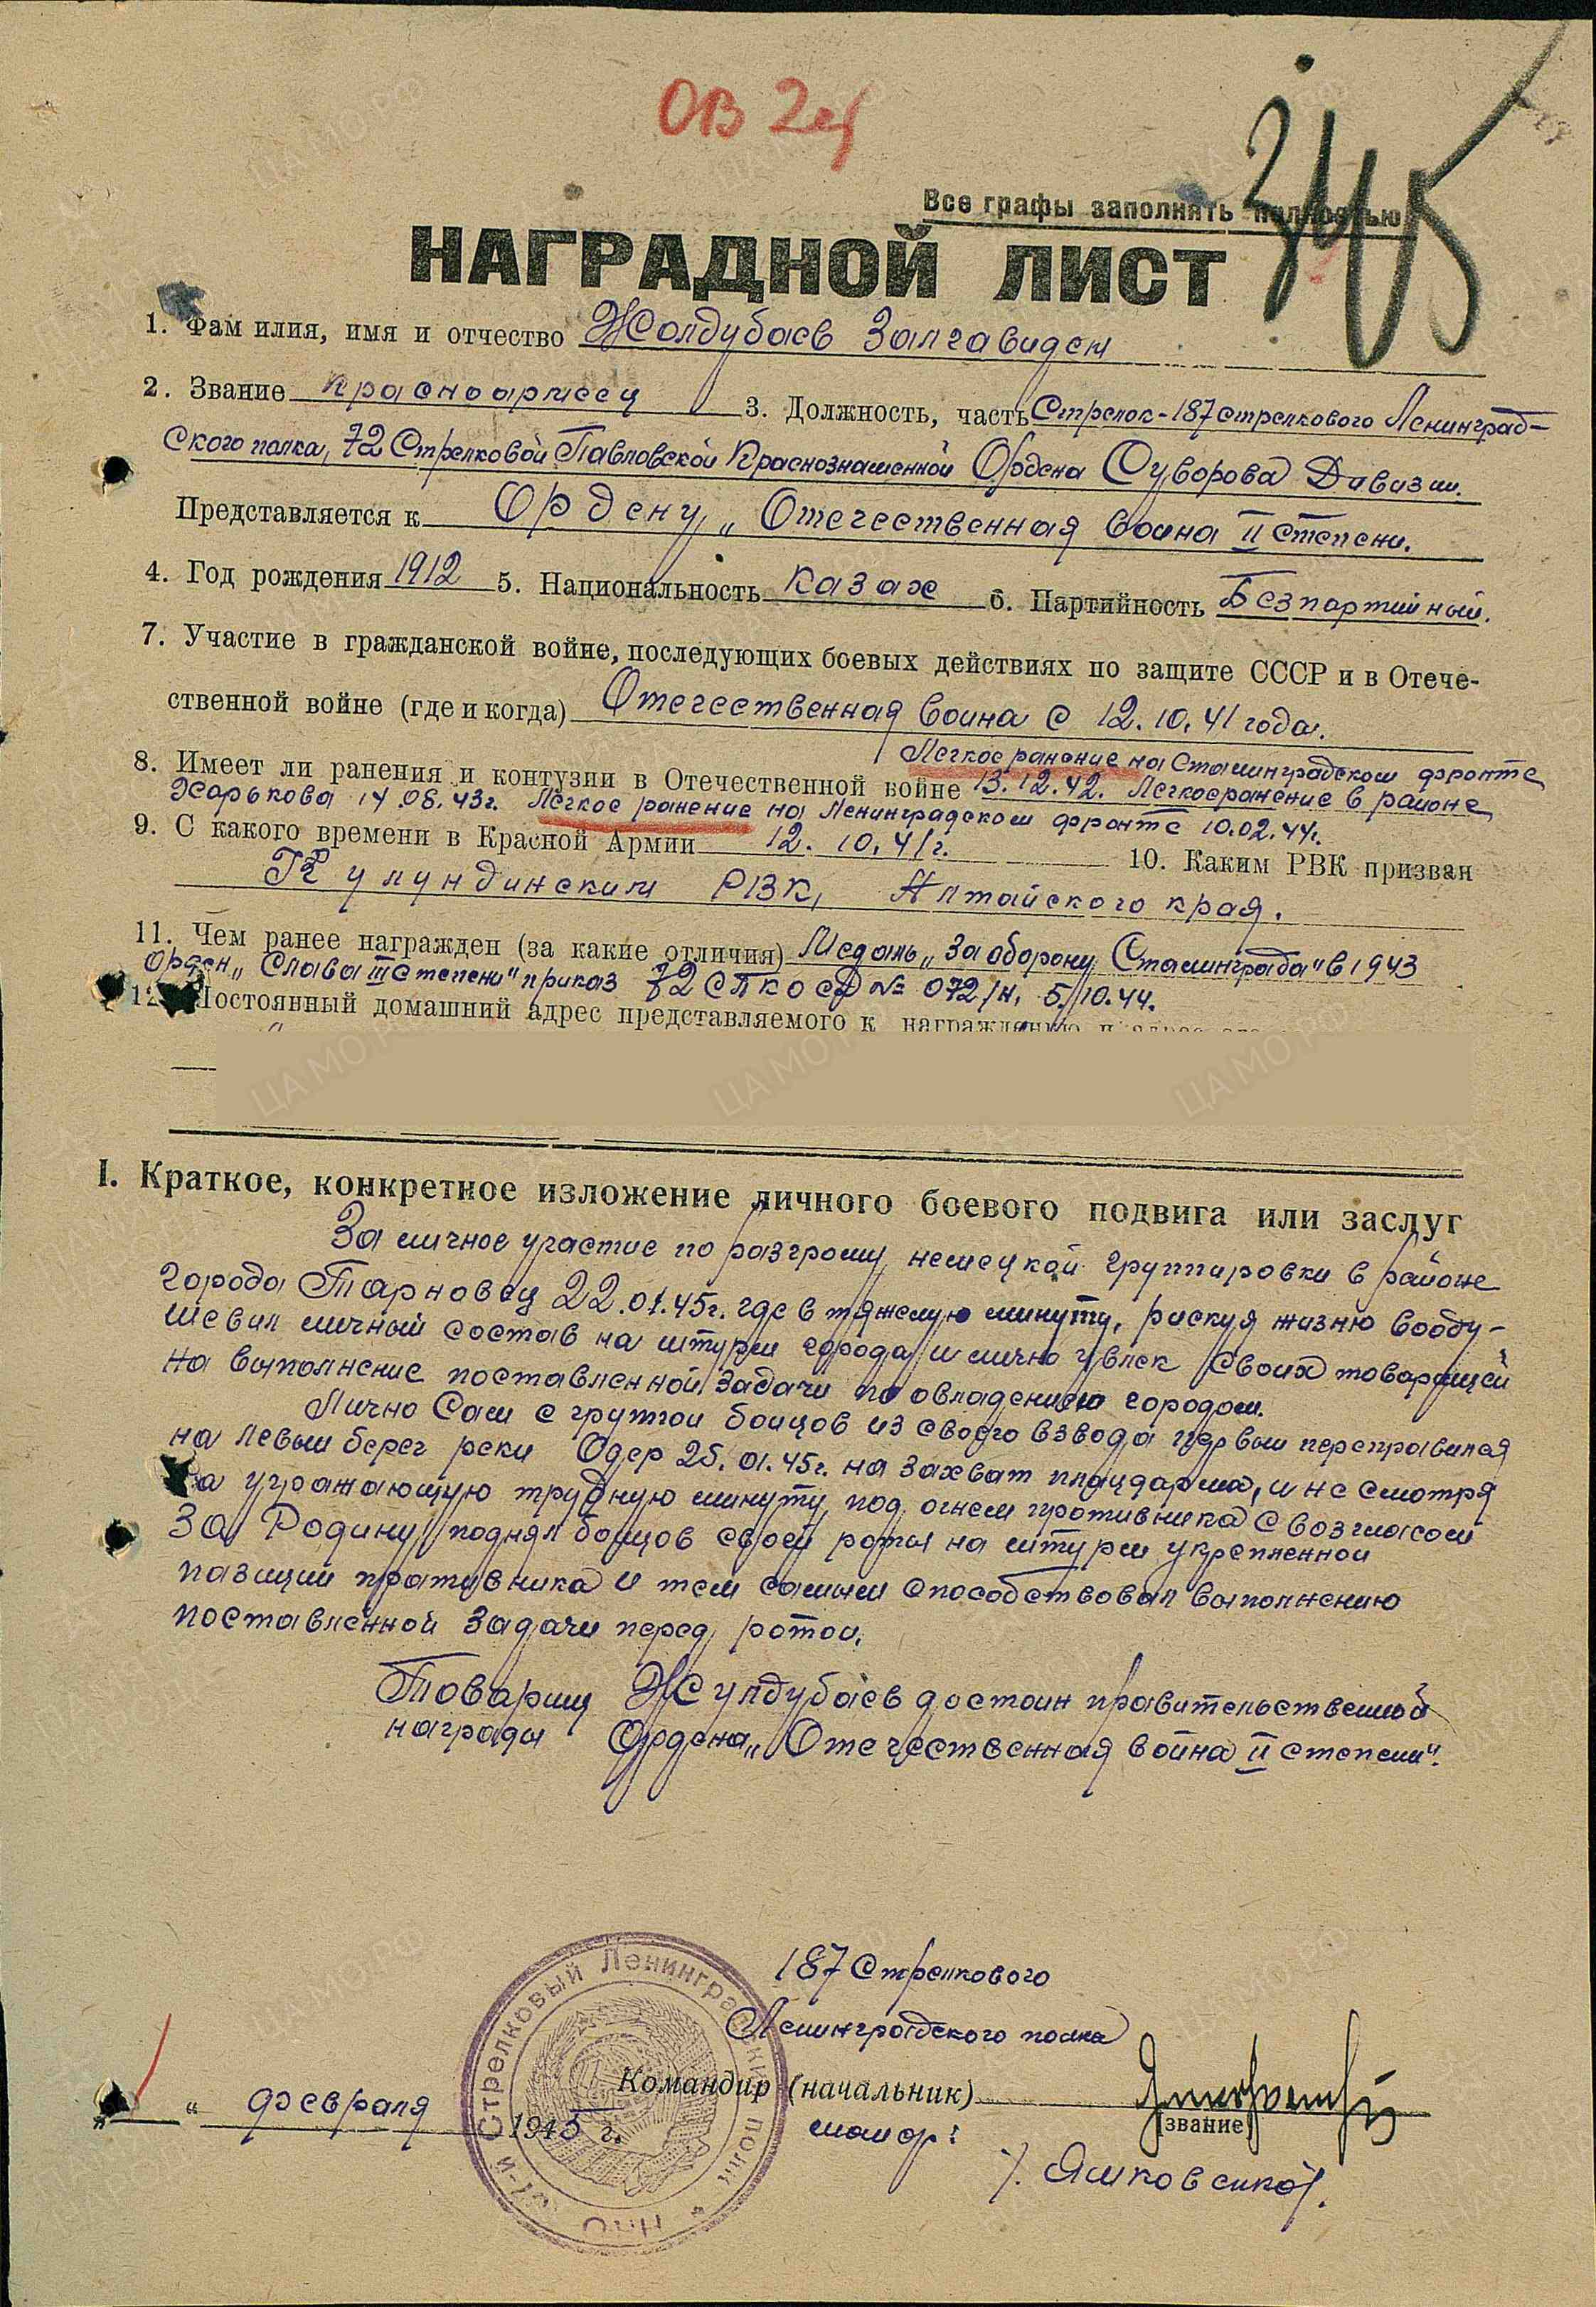 ОВ 2ст
345
Все графы заполнять полностью
НАГРАДНОЙ ЛИСТ
1. Фамилия, имя и отчество Жолдубаев Залгавиден
2. Звание красноармеец 3. Должность, часть Стрелок-187 стрелкового Ленинград-
ского полка, 72 Стрелковой Павловской Краснознаменной Ордена Суворова Дивизии.
Представляется к Ордену „Отечественная воина II степени.
4. Год рождения 1912 5. Национальность казах 6. Партийность Безпартийный.
7. Участие в гражданской войне, последующих боевых действиях по защите СССР и в Отече-
ственной войне (где и когда) Отечественная воина с 12.10.41 года.
Легкое ранение на Сталинградском фронте
8. Имеет ли ранения и контузии в Отечественной войне 13.12.42. Легкое ранение в районе
Харькова 14.08.43г. Легкое ранение на Ленинградском фронте 10.02.44г.
9. С какого времени в Красной Армии 12.10.41г. 10. Каким РВК призван
Кулундинским РВК, Алтайского края.
11. Чем ранее награжден (за какие отличия) Медаль „За оборону Сталинграда" в 1943
Орден „Слава III степени" приказ 72 СПКОСД № 072/н, 5.10.44.
12. Постоянный домашний адрес представляемого к награждению и адрес его
I. Краткое, конкретное изложение личного боевого подвига или заслуг
За личное участие по разгрому немецкой группировки в районе
города Тарновец 22.01.45г. где в тяжелую минуту, рискуя жизню вооду-
шевил личный состав на штурм города и лично увлек своих товарищей
на выполнение поставленной задачи по овладению городом.
Лично Сам с группой бойцов из своего взвода первым переправился
на левый берег реки Одер 25.01.45г. на захват плацдарма, и не смотря
на угражающую трудную минуту под огнем противника с возгласом
За Родину поднял бойцов своей роты на штурм укрепленной
пазиции противника и тем самым способствовал выполнению
поставленной задачи перед ротой.
Товарищ Жулдубаев достоин правительственной
награды Ордена „Отечественная война II степени".
187 Стрелкового
Ленинградского полка
Командир (начальник)
„ “ февраля 1945 г.
майор:
(звание)
/. Яшковский/.
Стрелковый Ленинградский полк
НПО
ЦА МО РФ